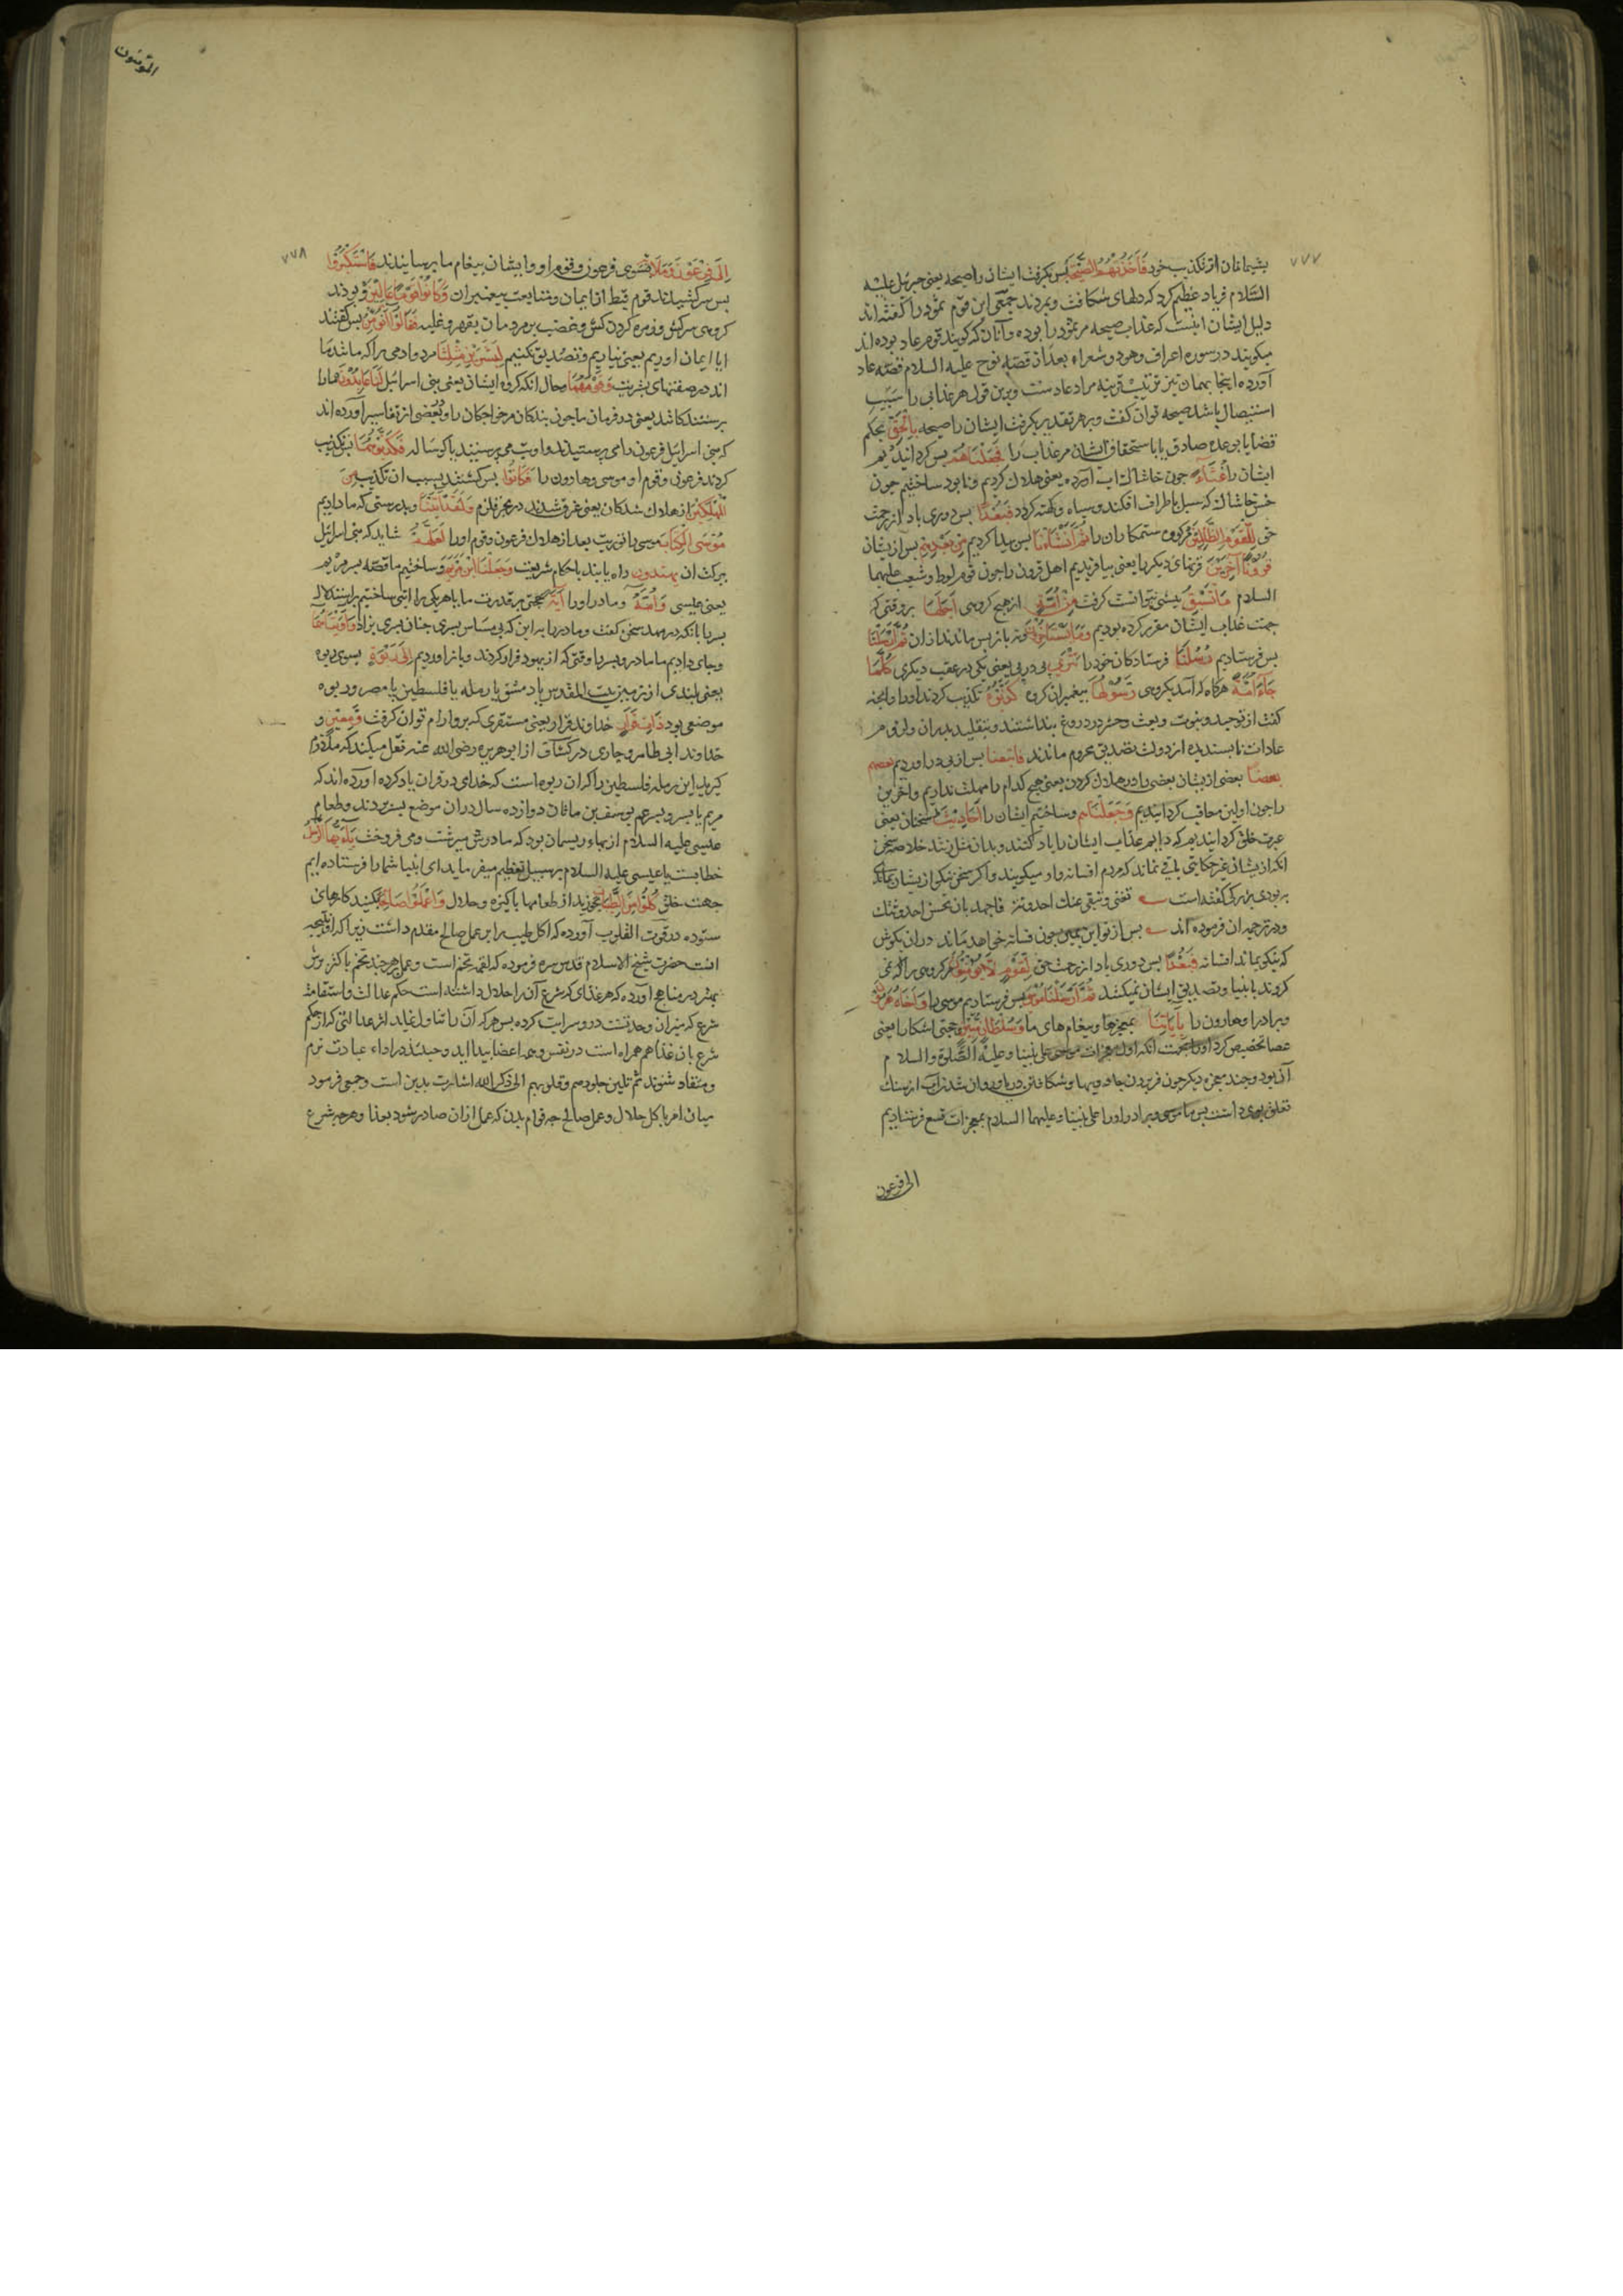 ۷۷۷
پشیمانان از تکذیب خود فَاَخَذَتْهُمُ الصَّیْحَةُ پس بکرفت ایشان را صیحه یعنی جبرئیل علیه
السّلام فریاد عظیم کرد که دلهای شکافت و بمردند جمعی این قوم ثمود را کفته‌اند
دلیل ایشان اینست که عذاب صیحه مر ثمود را بوده و آنان که کویند قوم عاد بوده‌اند
میکویند در سوره اعراف و هود و شعراء بعد از قصّه نوح علیه السلام قصّه عاد
آورده اینجا بهمان نیز ترتیب قرینه مراد عادست و برین قول هر عذابی را سبب
استیصال باشد صیحه توان کفت و بر هر تقدیر بکرفت ایشان را صیحه بِالْحَقِّ بحکم
قضا یا بوعده صادق یا باستحقاق ایشان مر عذاب را فَجَعَلْنَاهُمْ پس کردانیدیم
ایشان را غُثَآءً چون خاشاک آب آورده یعنی هلاک کردیم و نابود ساختیم چون
خس و خاشاک که سیل باطراف افکند و سیاه و کهنه کردد فَبُعْدًا پس دوری باد از رحمت
حق لِلْقَوْمِ الظَّالِمِینَ مر کروه ستمکاران را ثُمَّ اَنْشَاْنَا پس پیدا کردیم مِنْ بَعْدِهِمْ پس از ایشان
قُرُونًا آخَرِینَ قرنهای دیکر را یعنی بیافریدیم اهل قرون را چون قوم لوط و شعیب علیهما
السلام مَا تَسْبِقُ پیشی نتوانست کرفت مِنْ اُمَّةٍ از هیچ کروهی اَجَلَهَا بر وقتی که
جهت عذاب ایشان مقرر کرده بودیم وَمَا یَسْتَاْخِرُونَ و نه باز پس ماندند از ان ثُمَّ اَرْسَلْنَا
پس فرستادیم رُسُلَنَا فرستادکان خود را تَتْرَی پی در پی یعنی یکی در عقب دیکری کُلَّمَا
جَآءَ اُمَّةً هرکاه که آمد بکروهی رَسُولُهَا پیغمبران کروه کَذَّبُوهُ تکذیب کردند او را و انچه
کفت از توحید و نبوت و بعث و حشر دروغ پنداشتند و بتقلید پدران و لزوم
عادات ناپسندیده از دولت تصدیق محروم ماندند فَاَتْبَعْنَا پس از پی در آوردیم بَعْضَهُمْ
بَعْضًا بعضی از ایشان بعضی را در هلاک کردن یعنی هیچ کدام را مهلت ندادیم و آخرین
را چون اولین معاقب کردانیدیم وَجَعَلْنَاهُمْ و ساختیم ایشان را اَحَادِیثَ سخنان یعنی
عبرت خلق کردانیدیم که دایم عذاب ایشان را یاد کنند و بدان مثل زنند خلاصه سخن
انکه از ایشان غیر حکایتی باقی نماند که مردم افسانه‌وار میکویند و اکر سخن نیکو از ایشان بماند
به بودی بزرکی کفته است تفنی و تبقی عنک احدوثة فاجهد بان تحسن احدوثتک
و در ترجمه ان فرموده‌اند پس از تو این چون فسانه خواهد ماند در ان بکوش
که نیکو بماند افسانه فَبُعْدًا پس دوری باد از رحمت حق لِقَوْمٍ لَا یُؤْمِنُونَ مر کروهی را که نمی
کروند بانبیا و تصدیق ایشان نمیکنند ثُمَّ اَرْسَلْنَا مُوسَی پس فرستادیم موسی را وَاَخَاهُ هَارُونَ
و برادر او هارون را بِآیَاتِنَا بمعجزها و پیغامهای ما وَسُلْطَانٍ مُبِینٍ و حجتی آشکارا یعنی
عصا تخصیص کرد او را بجهت انکه اول معجزات موسی علی نبینا و علیه الصّلوة والسلام
آن بود و چند معجزه دیکر چون فرو بردن جادویها و شکافتن دریا و روان شدن آب از سنک
تعلق بوی داشت پس ما موسی و برادر او را علی نبینا و علیهما السلام بمعجزات تسع فرستادیم
الی فرعون
المؤمنون
۷۷۸
اِلَی فِرْعَوْنَ وَمَلَائِهِ بسوی فرعون و قوم او و ایشان پیغام ما برسانیدند فَاسْتَکْبَرُوا
پس سرکشیدند قوم قبط از ایمان و متابعت پیغمبران وَکَانُوا قَوْمًا عَالِینَ و بودند
کروهی سرکش و زمره کردن کش و غضب بر مردمان بقهر و غلبه فَقَالُوا اَنُؤْمِنُ پس کفتند
ایا ایمان اوریم یعنی نیاریم و تصدیق نکنیم لِبَشَرَیْنِ مِثْلِنَا مر دو ادمی را که مانند ما
اند در صفتهای بشریت وَقَوْمُهُمَا و حال انکه کروه ایشان یعنی بنی اسرائیل لَنَا عَابِدُونَ ما را
پرستندکانند یعنی در فرمان ما چون بندکان مر خواجکان را و در بعضی از تفاسیر آورده‌اند
که بنی اسرائیل فرعون را می پرستیدند و او بت می پرستید یا کوساله فَکَذَّبُوهُمَا پس تکذیب
کردند فرعون و قوم او موسی و هارون را فَکَانُوا پس کشتند بسبب ان تکذیب مِنَ
الْمُهْلَکِینَ از هلاک شدکان یعنی غرق شدند در بحر قلزم وَلَقَدْ آتَیْنَا و بدرستی که ما دادیم
مُوسَی الْکِتَابَ موسی را توریت بعد از هلاک فرعون و قوم او را لَعَلَّهُمْ شاید که بنی اسرائیل
ببرکت ان یَهْتَدُونَ راه یابند باحکام شریعت وَجَعَلْنَا ابْنَ مَرْیَمَ و ساختیم ما قصّه پسر مریم
یعنی عیسی وَاُمَّهُ و مادر او را آیَةً حجتی بر قدرت ما یا هر یکی را آیتی ساختیم براستدلال
پسر را بانکه در مهد سخن کفت و مادر را به این که بی مساس بشری چنان پسری بزاد وَآوَیْنَاهُمَا
و جای دادیم ما مادر و پسر را وقتی که از یهود فرار کردند و باز آوردیم اِلَی رَبْوَةٍ بسوی ربوه
یعنی بلندی از زمین بیت المقدس یا دمشق یا رمله یا فلسطین یا مصر و ربوه
موضعی بود ذَاتِ قَرَارٍ خداوند قرار یعنی مستقری که برو ارام توان کرفت وَمَعِینٍ و
خداوند ابی ظاهر و جاری در کشاف از ابو هریره رضی الله عنه نقل میکند که ملازم
کیرید این رمله فلسطین را که ان ربوه است که خدای در قران یاد کرده اورده‌اند که
مریم با پسر و پسر عم یوسف بن ماثان دوازده سال دران موضع بسر بردند و طعام
عیسی علیه السلام از بهاء ریسمان بود که مادرش میرشت و می فروخت یَا اَیُّهَا الرُّسُلُ
خطابست با عیسی علیه السلام بر سبیل تعظیم میفرماید ای انبیا شما را فرستاده‌ایم
جهت خلق کُلُوا مِنَ الطَّیِّبَاتِ بخورید از طعامها پاکیزه و حلال وَاعْمَلُوا صَالِحًا و بکنید کارهای
ستوده در قوت القلوب آورده که اکل طیب را بر عمل صالح مقدم داشت زیرا که از نتیجه
انست حضرت شیخ الاسلام قدس سره فرموده که لقمه تخم است و عمل هر چند تخم پاکتر برش
بهتر در مناهج آورده که هر غذای که شرع آن را حلال داشته است حکم عدالت و استقامت
شرع که میزان وحدتست درو سرایت کرده پس هر که آن را تناول نماید اثر عدالتی که از حکم
شرع بان غذا همراه است در نفس و همه اعضا پیدا اید و حینئذ در اداء عبادت نرم
و منقاد شوند ثم تلین جلودهم و قلوبهم الی ذکر الله اشارت بدین است و جمعی فرمود
میان امر باکل حلال و عمل صالح چه قوام بدن که عمل ازان صادر شود بغذا و هر چه شرع